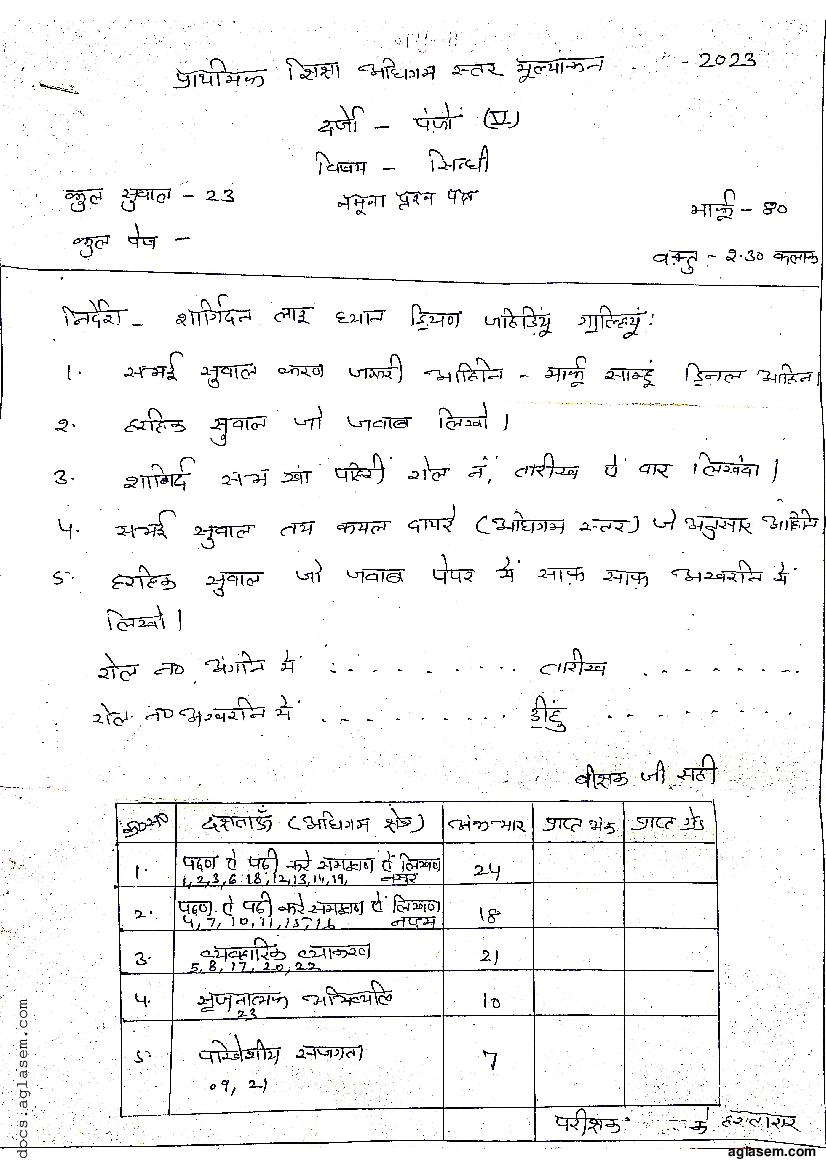 प्राथमिक शिक्षा अधिगम स्तर मूल्यांकन - 2023
दर्जो - पंजों (V)
विषय - सिन्धी
कुल सुवाल - 23 नमूना प्रश्न पत्र मार्कू - 80
कुल पेज -
वक़्तु - 2.30 कलाक
निर्देश - शागिर्दन लाइ ध्यान ड्रियण जहिड़ियूं गाल्हियूं:
1. सभई सुवाल करण जरूरी आहिनि - मार्कू साम्हूं ड्रिनल आहिन।
2. हरहिक सुवाल जो जवाब लिखो।
3. शागिर्द सभ खां पहिरीं रोल नं, तारीख ऐं वार लिखंदा।
4. सभई सुवाल तय कयल दायरे (अधिगम स्तर) जे अनुसार आहिनि
5. हरहिक सुवाल जो जवाब पेपर में साफ़ साफ़ अखरनि में
लिखो।
रोल न० अंगनि में . . . . . . . . . . तारीख . . . . . . . .
रोल न० अखरनि में . . . . . . . . . . ड्रींहुं . . . . . . . . .
बीक्षक जी सही
क्र०स० दक्षताऐं (अधिगम क्षेत्र) अंक भार प्राप्त अंक प्राप्त ग्रेड
1. पढ़ण ऐं पढ़ी करे समझण ऐं लिखण नसर 24
1,2,3,6,18,12,13,14,19,
2. पढ़ण ऐं पढ़ी करे समझण ऐं लिखण नज़्म 18
4,7,10,11,15,16
3. व्यवहारिक व्याकरण 21
5,8,17,20,22
4. सृजनात्मक अभिव्यक्ति 10
23
5. परिवेशीय सजगता 7
09, 21
परीक्षक के हस्ताक्षर
docs.aglasem.com
aglasem.com